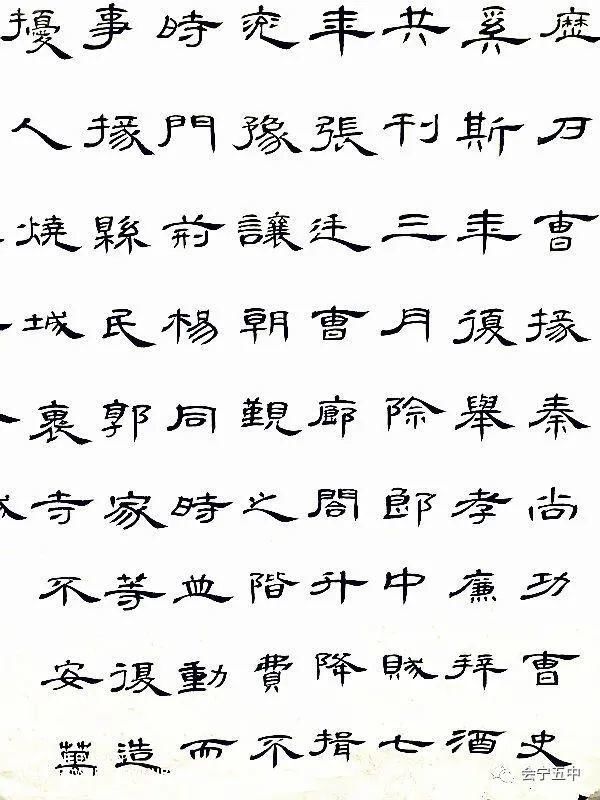 歷戶曹掾秦尚功曹史
奚斯年復舉孝廉拜酒
共刊三月除郎中賊七
年張廷曹廊閣升降揖
兗豫讓朝覲之階費不
時門荊楊同時並動而
事掾縣民郭家等復造
擾人燒城裏寺不安萬
会宁五中